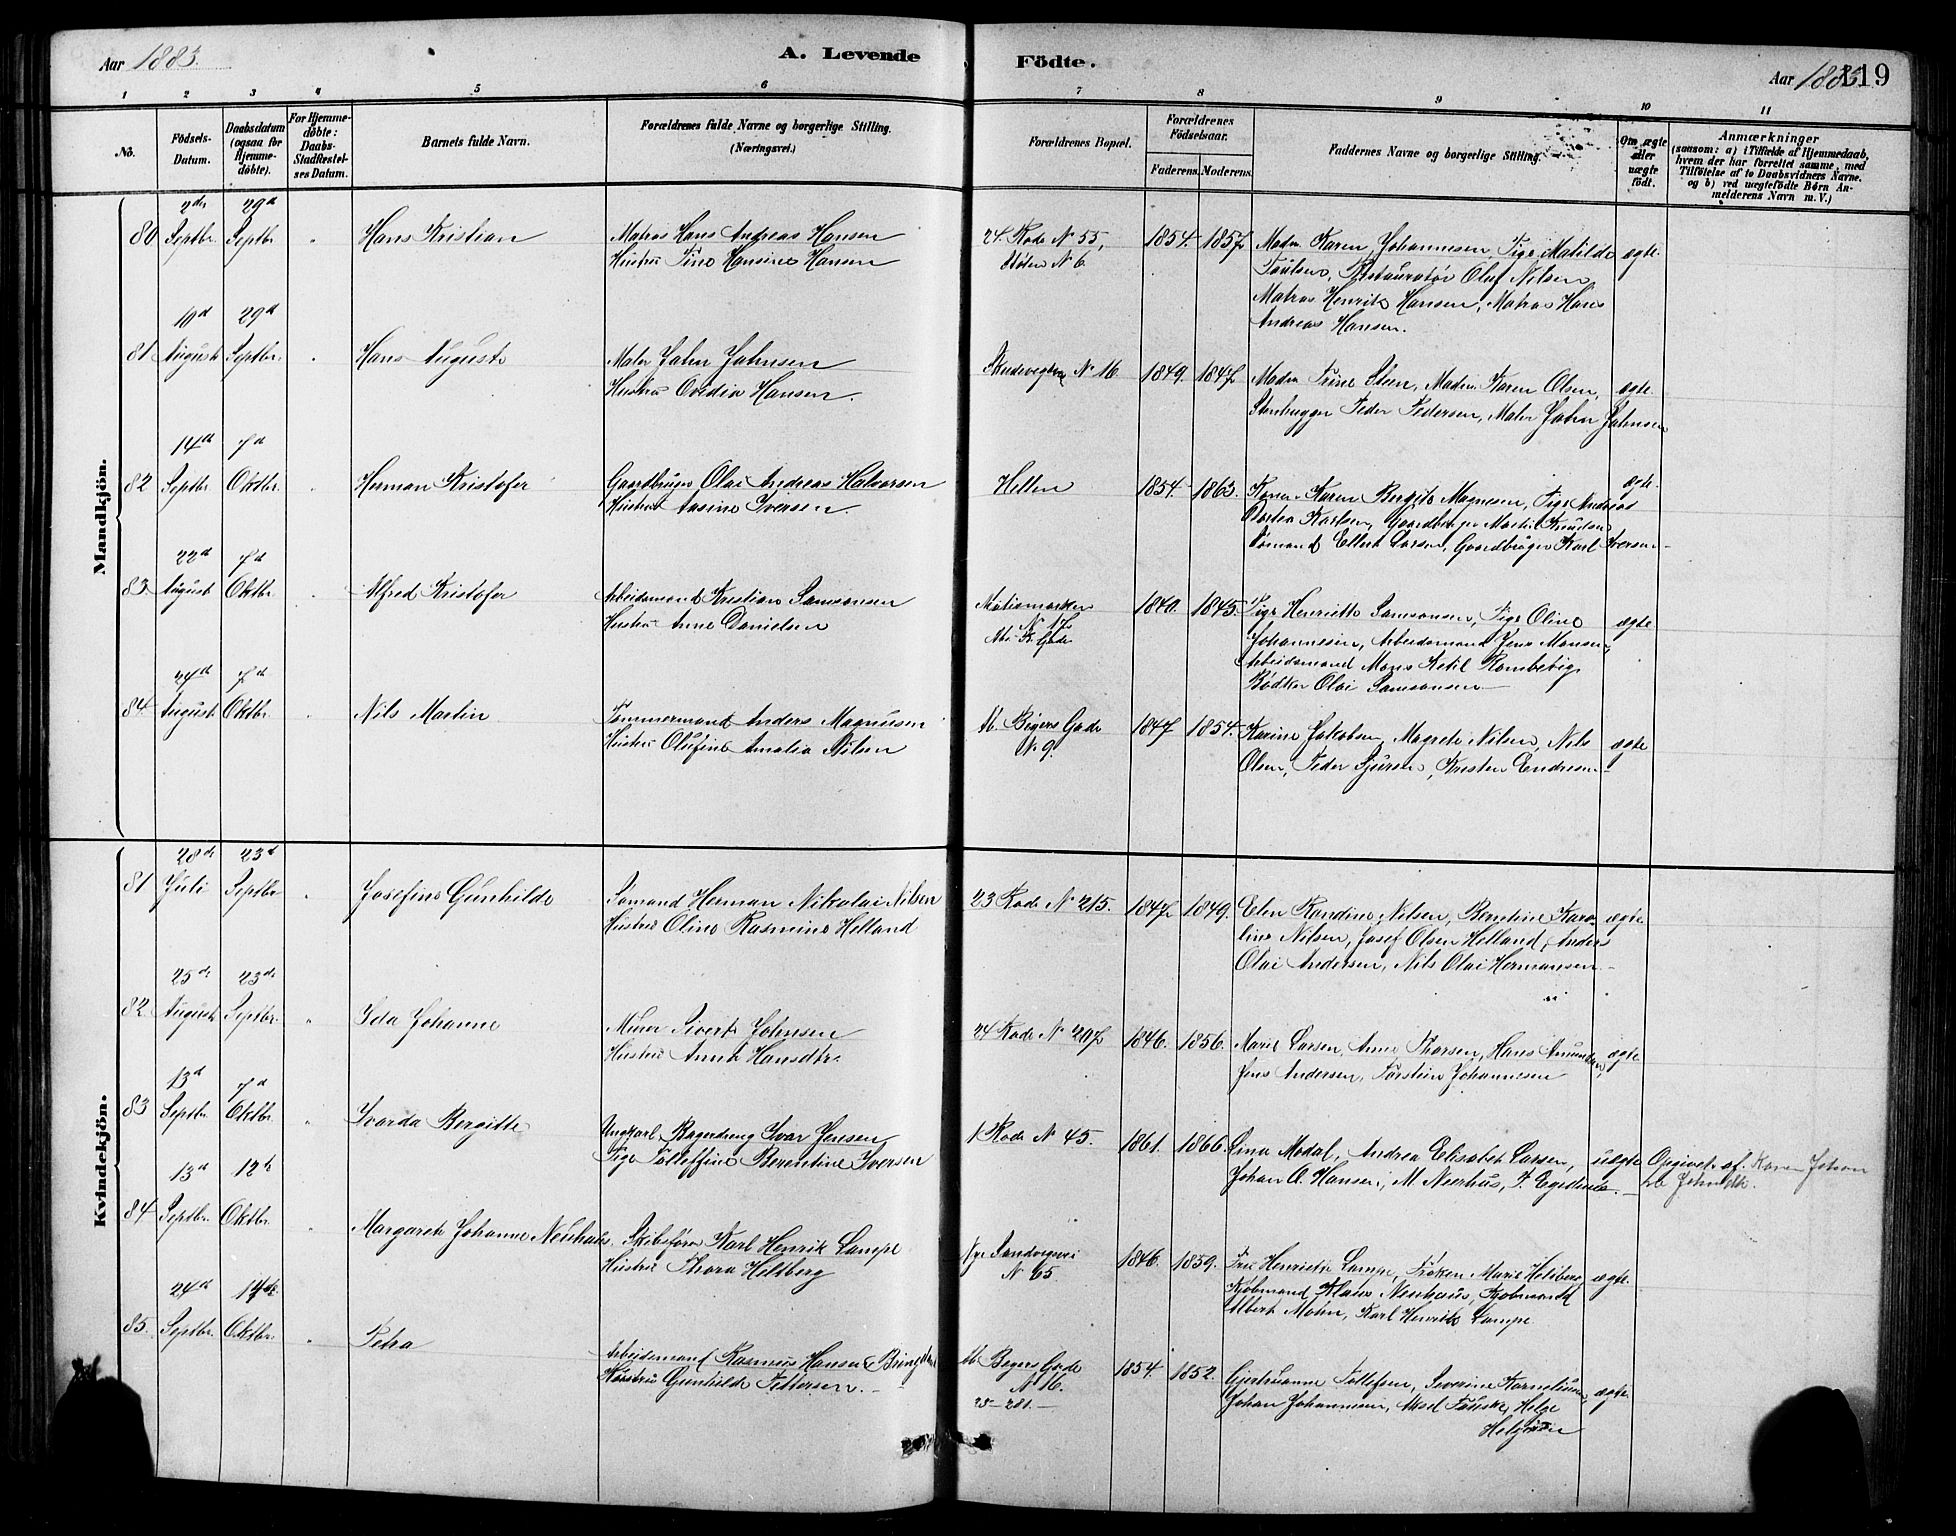 Aar 1883.
A. Levende
Födte.
Aar 1883
119
1 2 3 4 5 6 7 8 9 10 11
No.
Födsels-Datum.
Daabsdatum (ogsaa for Hjemmedöbte).
For Hjemmedöbte: Daabs-Stadfæstelses Datum.
Barnets fulde Navn.
Forældrenes fulde Navne og borgerlige Stilling. (Næringsvei.)
Forældrenes Bopæl.
Forældrenes Födselsaar.
Faderens. Moderens.
Faddernes Navne og borgerlige Stilling.
Om ægte eller uægte födt.
Anmærkninger
(saasom: a) i Tilfælde af Hjemmedaab,
hvem der har forrettet samme, med
Tilföielse af to Daabsvidners Navne,
og b) ved uægtefödte Börn An-
melderens Navn m. V.)
Mandkjön.
80 2de Septbr. 29d Septbr. " Hans Kristian
Matros Hans Andreas Hansen
Hustru Tine Hansine Hansen
24. Rode N 55,
Støten N 6.
1854. 1857
Madm. Karen Johannesen, Pige Matilde
Paulsen, Restauratør Oluf Nilsen
Matros Henrik Hansen, Matros Hans
Andreas Hansen.
ægte.
81 10d August 29d Septbr. " Hans August
Maler John Johnsen
Hustru Ovidia Hansen
N 16. 1849. 1847
Madm Trine Steen, Madm. Karen Olsen,
Stenhugger Peder Pedersen, Maler John Johnsen
ægte.
82 14d Septbr. 7d Oktbr. " Herman Kristofer
Gaardbruger Olai Andreas Halvorsen
Hustru Aasine Iversen
Hellen
1854. 1863.
Kone Karen Bergite Magnesen, Pige Andrea
Karlsen, Gaardbruger Martin Knudsen
Sømand Ellert Larsen, Gaardbruger Karl Iversen
ægte.
83 22d August 7d Oktbr. " Alfred Kristofer
Arbeidsmand Kristian Samsonsen
Hustru Anne Danielsen
N 17
1840. 1845.
Pige Henriette Samsonsen, Pige Oline
Johannesen, Arbeidsmand Jens Monsen,
Arbeidsmand Mons Ketil
Bødker Olai Samsonsen
ægte
84 24d August 7d Oktbr. " Nils Martin
Tømmermand Anders Magnusen
Hustru Olufine Amalia Nilsen
N 9.
1847 1854.
Karine Jakobsen, Magrete Nilsen, Nils
Olsen, Peder Sjursen, Kristen Endresen
ægte
Kvindekjön.
81 28de Juli 23d Septbr " Josefine Gunhilde
Sømand Herman Nikolai Nilsen
Hustru Oline Rasmine Helland
23 Rode N 215.
1847 1849.
Elen Randine Nilsen, Berntine Karo-
line Nilsen, Josef Olsen Helland, Anders
Olai Andersen, Nils Olai Hermansen
ægte
82. 25de August 23de Septbr. " Ida Johanne
Murer Sivert Johnsen
Hustru Anna Hansdtr.
24 Rode N 207
1846. 1856.
Marie Larsen, Anne Thorsen, Hans Amundsen,
Jens Andersen, Torstein Johannesen
ægte
83 13d Septbr. 7d Oktbr. " Ivarda Bergitte
Ungkarl Bagerdreng Ivar Jensen
Pige Tolleffine Berentine Iversen
1 Rode N 45.
1861. 1866.
Lina Modal, Andrea Elisabet Larsen,
Johan O. Hansen, M Neerhus, T. Egedius.
uægte
Opgivet af Karen
84 13d Septbr. 12te Oktbr. " Margarete Johanne Neuhaus.
Skibsfører Karl Henrik Lampe
Hustru Thora Heltberg
Nye Sandvigsvei
N 65.
1846. 1859.
Fru Henriette Lampe, Frøken Marie Heltberg
Kjøbmand Klaus Neuhaus, Kjøbmand
Albert Mohn, Karl Henrik Lampe
ægte.
85. 24d Septbr. 14de Oktbr. " Petra
Arbeidsmand Rasmus Hansen
Hustru Gunhilde Pettersen.
N 16.
23 — 281.—
1854. 1852.
Gjertruanne Tollefsen, Severine Kornelius
Johan Johannesen, Aksel Fauske, Helge
Helgesen
ægte.